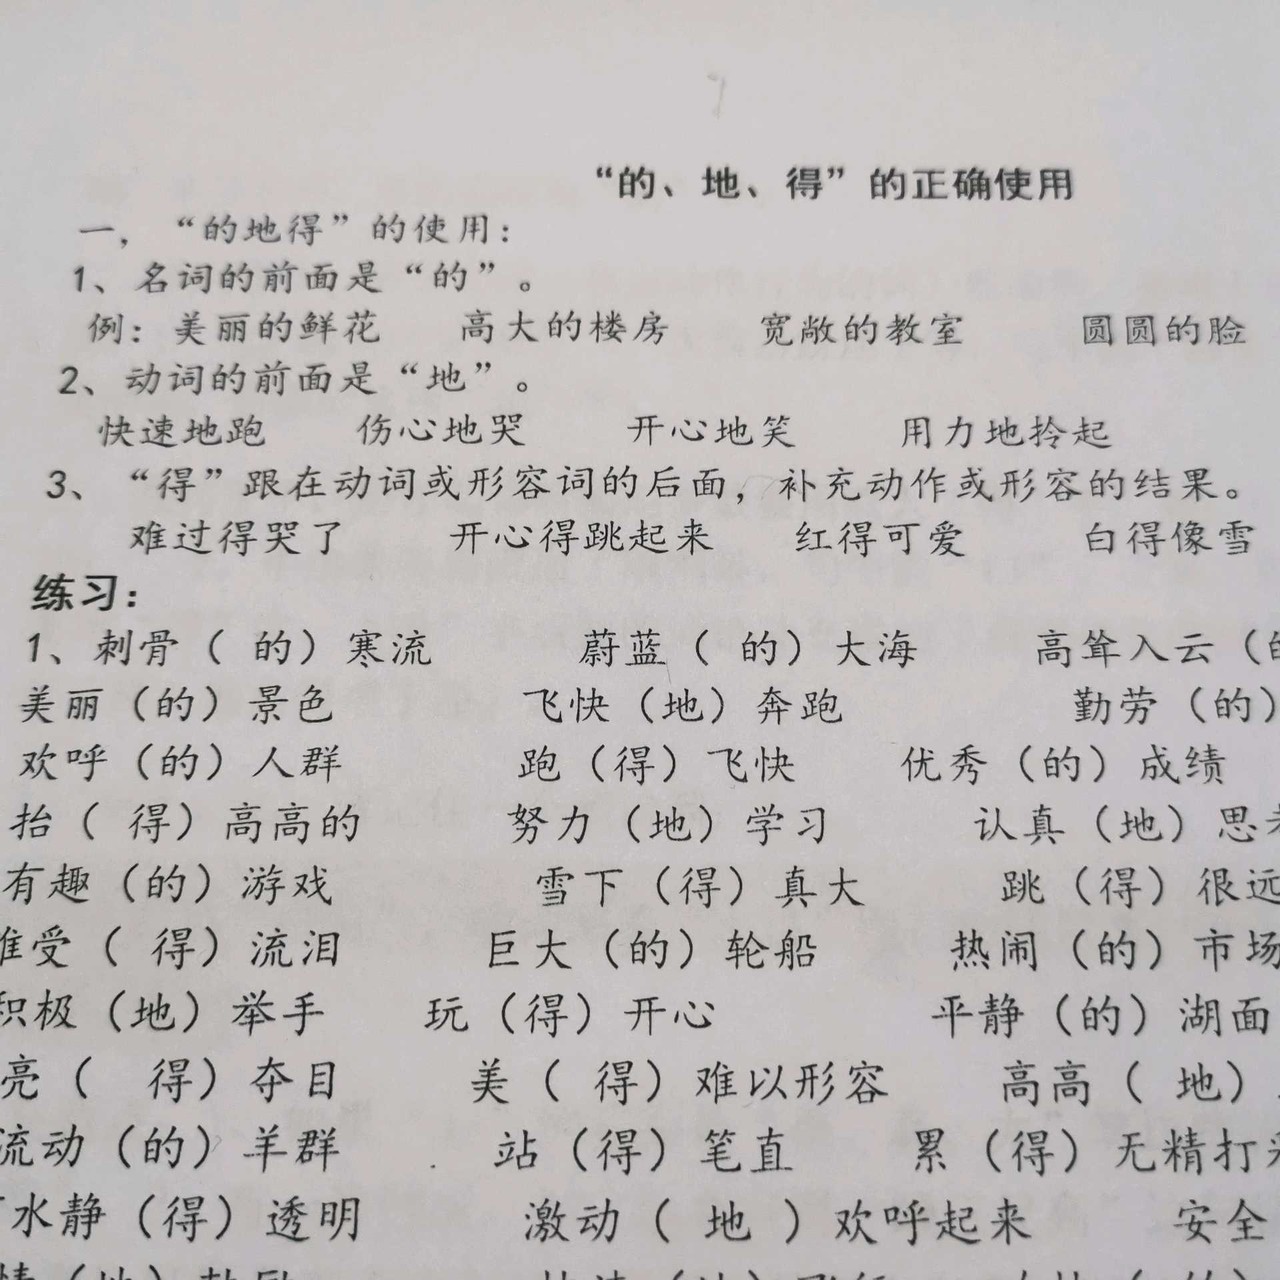 “的、地、得”的正确使用
一，“的地得”的使用：
1、名词的前面是“的”。
例：美丽的鲜花 高大的楼房 宽敞的教室 圆圆的脸
2、动词的前面是“地”。
快速地跑 伤心地哭 开心地笑 用力地拎起
3、“得”跟在动词或形容词的后面，补充动作或形容的结果。
难过得哭了 开心得跳起来 红得可爱 白得像雪
练习：
1、刺骨（ 的）寒流 蔚蓝（ 的）大海 高耸入云（的
美丽（的）景色 飞快（地）奔跑 勤劳（的）
欢呼（的）人群 跑（得）飞快 优秀（的）成绩
抬（ 得）高高的 努力（地）学习 认真（地）思考
有趣（的）游戏 雪下（得）真大 跳（得）很远
难受（ 得）流泪 巨大（的）轮船 热闹（的）市场
积极（地）举手 玩（得）开心 平静（的）湖面
亮（ 得）夺目 美（ 得）难以形容 高高（ 地）
流动（的）羊群 站（得）笔直 累（得）无精打采
水静（得）透明 激动（ 地 ）欢呼起来 安全